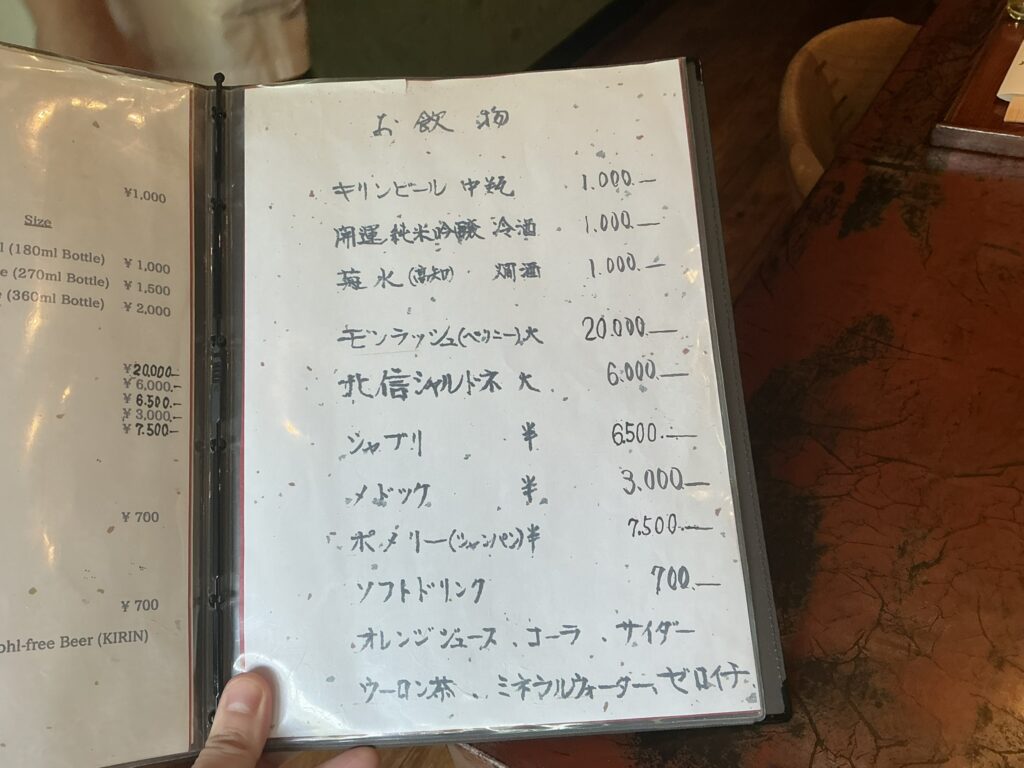 ¥1,000
Size
(180ml Bottle) ¥ 1,000
(270ml Bottle) ¥ 1,500
(360ml Bottle) ¥ 2,000
¥20000.—
¥ 6,000.—
¥ 6.500—
¥ 3,000.—
¥ 7.500—
¥ 700
¥ 700
ohl-free Beer (KIRIN)
お飲物
キリンビール 中瓶 1.000.—
開運純米吟醸 冷酒 1.000.—
菊水(高知) 燗酒 1.000.—
モンラッシュ(ペリニー)大 20.000.—
北信シャルドネ 大 6.000.—
シャブリ 半 6.500.—
メドック 半 3.000.—
ポメリー(シャンパン)半 7.500.—
ソフトドリンク 700.—
オレンジジュース、コーラ、サイダー
ウーロン茶、ミネラルウォーター、ゼロイチ